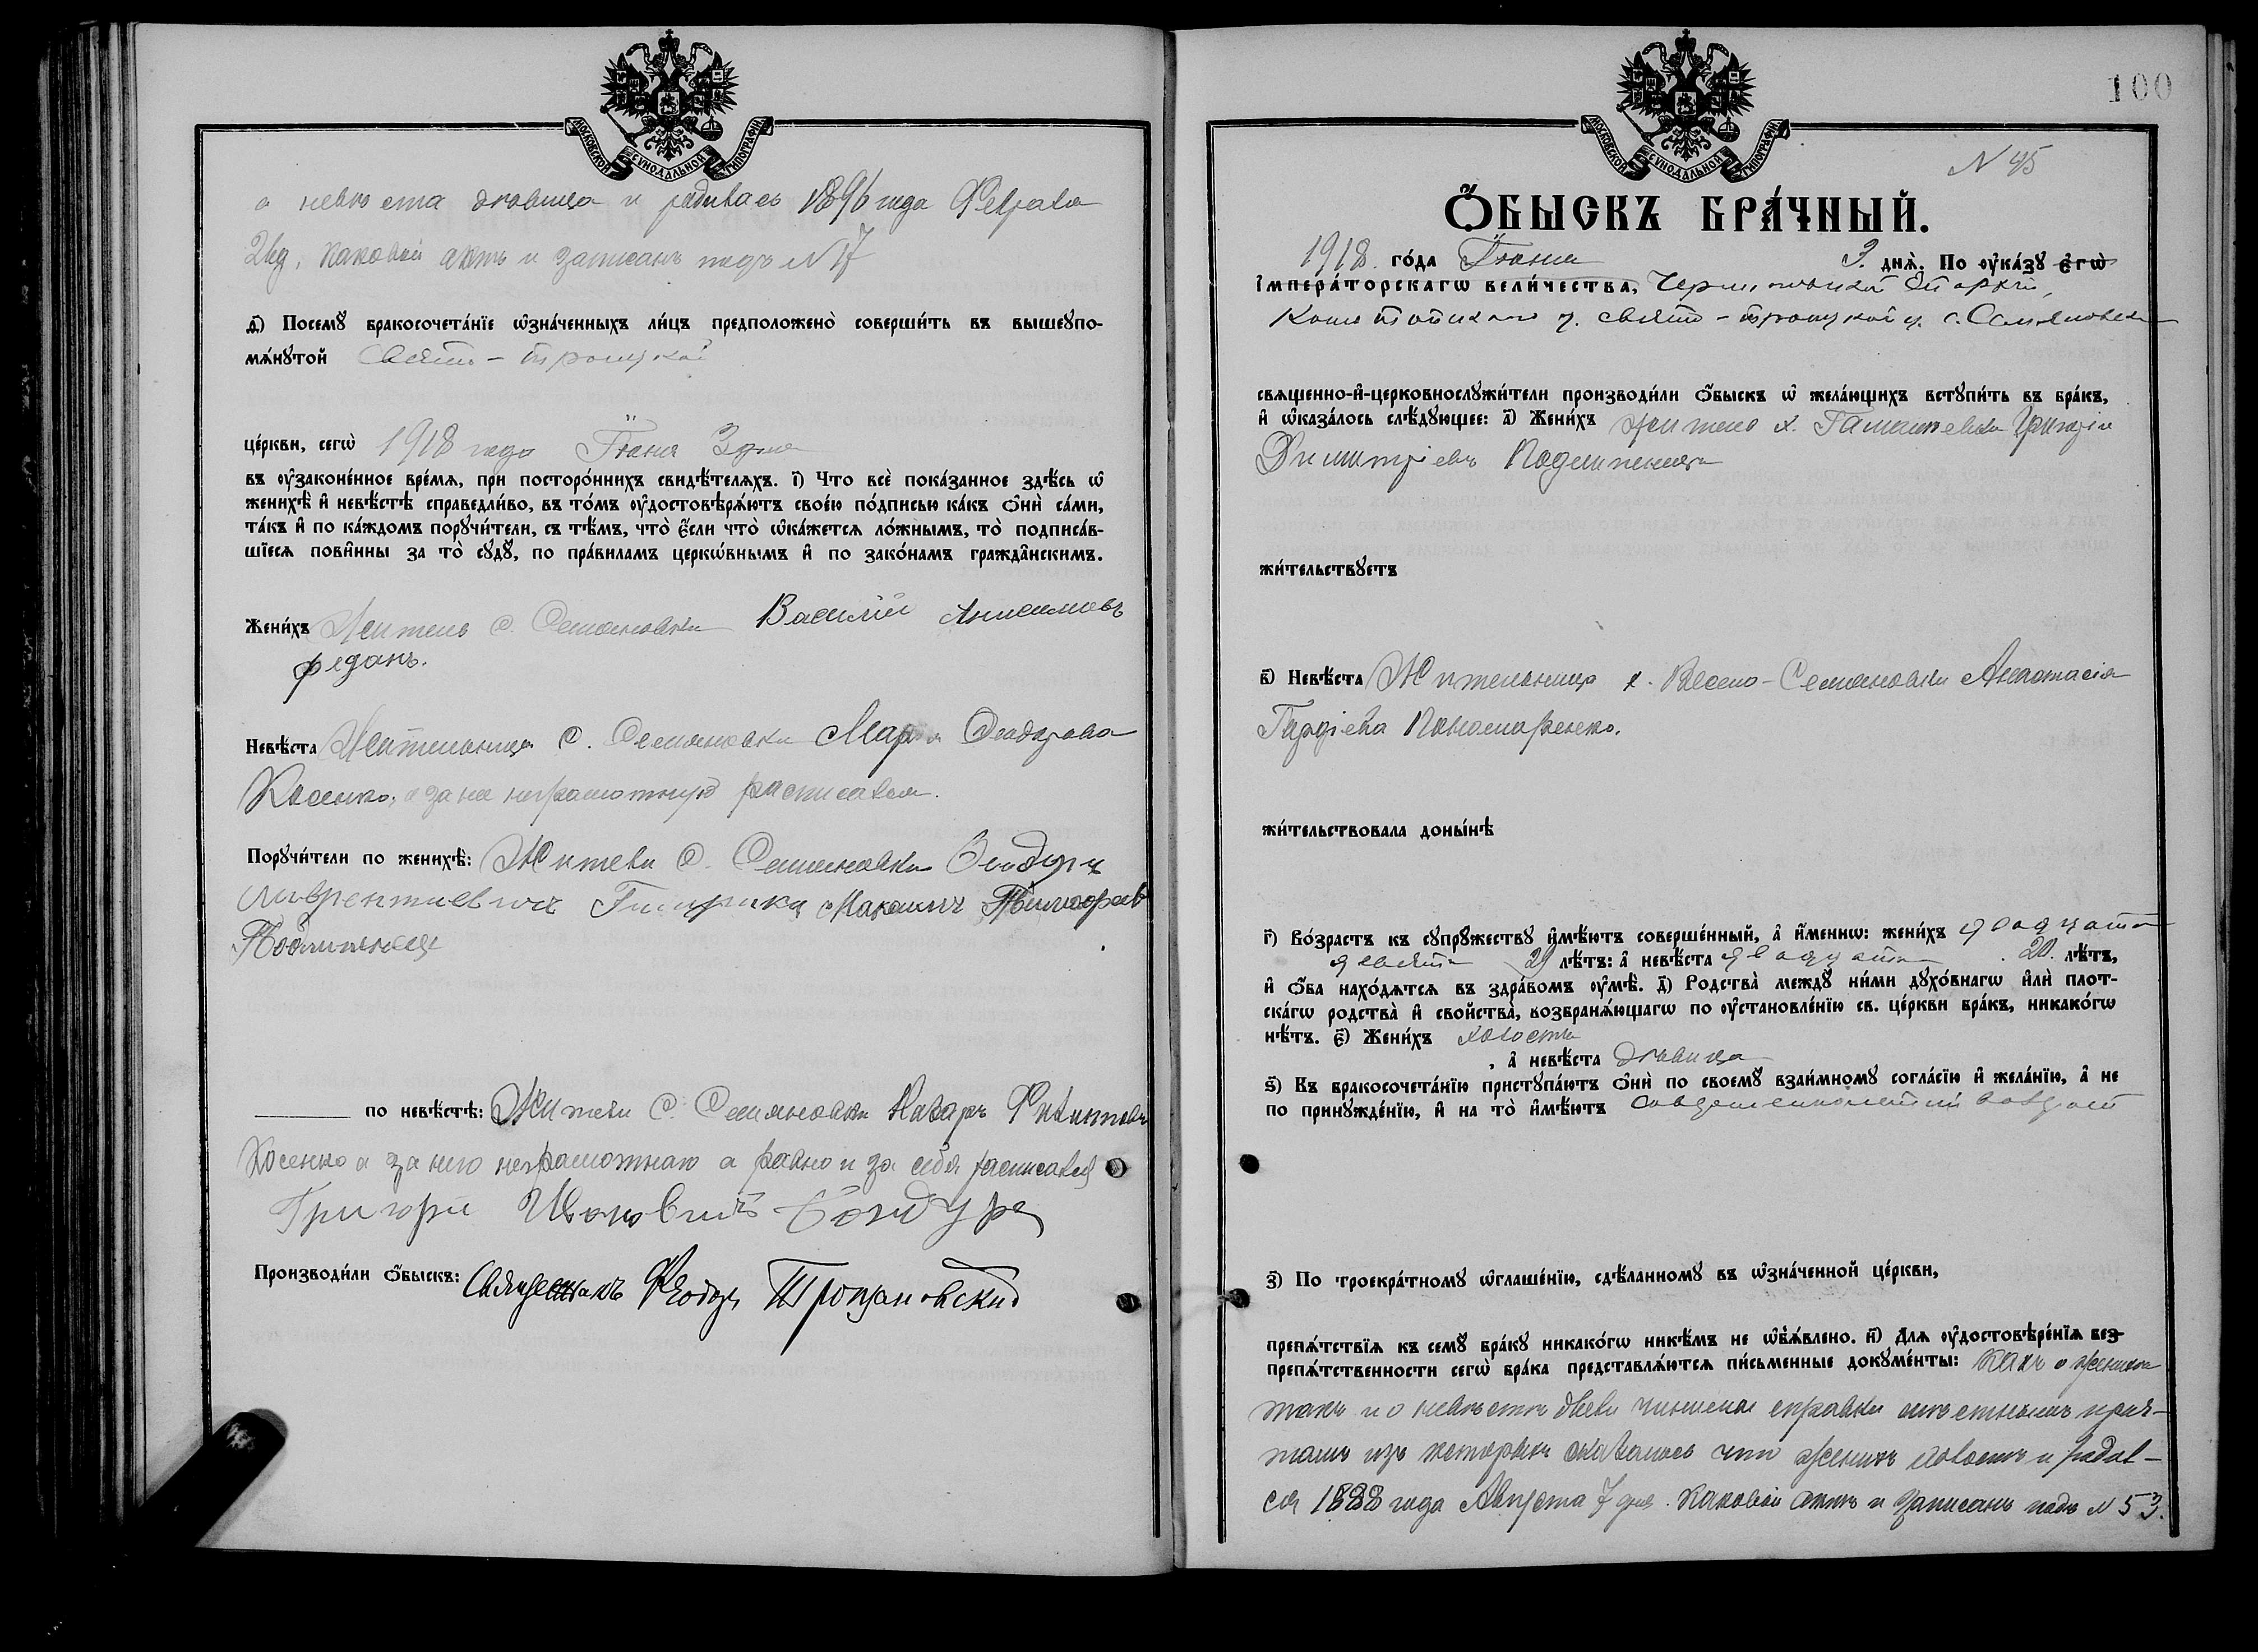 МОСКОВСКОЙ СѴНОДАЛЬНОЙ ТИПОГРАФІИ
а невѣста дѣвица и родилась 1896 года Февраля
2 1 д, каковой актъ и записанъ подъ N 17
д҃і) Посемꙋ бракосочета́нїе ѡ҆зна́ченныхъ ли́цъ предположено̀ соверши́ть въ вышеꙋпо-
мѧ́нꙋтой Свято-Троицкой
це́ркви, сегѡ̀ 1918 года Іюня 3 дня
въ ᲂу҆законе́нное вре́мѧ, при посторо́ннихъ свидѣ́телѧхъ. і҃) Что всѐ пока́занное здѣ́сь ѡ҆
женихѣ̀ и҆ невѣ́стѣ справедли́во, въ то́мъ ᲂу҆достовѣрѧ́ютъ свое́ю по́дписью ка́къ ѻ҆нѝ са́ми,
та́къ и҆ по ка́ждомъ порꙋчи́тели, съ тѣ́мъ, что̀ є҆́сли что̀ ѡ҆ка́жетсѧ ло́жнымъ, то̀ подписа́в-
шїесѧ пови́нны за то̀ сꙋдꙋ̀, по пра́виламъ церко́внымъ и҆ по зако́намъ гражда́нскимъ.
Жени́хъ Житель с. Семяновки Василій Анисимовъ
Редакъ.
Невѣ́ста Жительница с. Семяновки Марія Феодорова
Косенко, а за не неграмотную росписался
Порꙋчи́тели по женихѣ̀: Жители с. Семяновки Феодоръ
Лаврентиевичъ Макаимъ
Подлипенець
по невѣ́стѣ: Жители с. Семяновки Назаръ
Косенко а за него неграмотнаго а равно и за себя росписался
Григорій Ивановичъ Бондуръ
Производи́ли ѻ҆́быскъ: Священникъ Феодоръ Трощановскій
100
МОСКОВСКОЙ СѴНОДАЛЬНОЙ ТИПОГРАФІИ
N 45
Ѻ҆́БЫСКЪ БРА́ЧНЫЙ.
1918. го́да Іюня 3. днѧ̀. По ᲂу҆ка́зꙋ є҆гѡ̀
і҆мпера́торскагѡ вели́чества, Черниговской Епархіи,
Конотопскаго у. Свято-Троицкой ц. с. Семяновки
свѧщенно-и҆-церковнослꙋжи́тели производи́ли ѻ҆́быскъ ѡ҆ жела́ющихъ встꙋпи́ть въ бра́къ,
и҆ ѡ҆каза́лось слѣ́дꙋющее: а҃) Жени́хъ житель х. Гамалѣевки Григорій
Димитріевъ Подлипенецъ
жи́тельствꙋетъ
в҃) Невѣ́ста Жительница х. Весело-Семяновки Анастасія
Гордіева Пономаренко.
жи́тельствовала доны́нѣ
г҃) Во́зрастъ къ сꙋпрꙋ́жествꙋ и҆мѣ́ютъ соверше́нный, а҆ и҆́меннѡ: жени́хъ двадцати
девяти 29 лѣ́тъ: а҆ невѣ́ста двадцати 20. лѣ́тъ,
и҆ ѻ҆́ба нахо́дѧтсѧ въ здра́вомъ ᲂу҆мѣ̀. д҃) Родства̀ междꙋ̀ ни́ми дꙋхо́внагѡ и҆лѝ плот-
ска́гѡ родства̀ и҆ свойства̀, возбранѧ́ющагѡ по ᲂу҆становле́нїю св. це́ркви бра́къ, никако́гѡ
нѣ́тъ. є҃) Жени́хъ холостъ
, а҆ невѣ́ста дѣвица
ѕ҃) Къ бракосочета́нїю пристꙋпа́ютъ ѻ҆нѝ по своемꙋ̀ взаи́мномꙋ согла́сїю и҆ жела́нїю, а҆ не
по принꙋжде́нїю, и҆ на то̀ и҆мѣ́ютъ совершеннолѣтній возрастъ
з҃) По троекра́тномꙋ ѡ҆глаше́нїю, сдѣ́ланномꙋ въ ѡ҆зна́ченной це́ркви,
препѧ́тствїѧ къ семꙋ̀ бра́кꙋ никако́гѡ никѣ́мъ не ѡ҆б̾ѧ́влено. и҃) Длѧ ᲂу҆достовѣре́нїѧ без-
препѧ́тственности сегѡ̀ бра́ка представлѧ́ютсѧ пи́сьменные докꙋме́нты: какъ о женихѣ
такъ и о невѣстѣ справки мѣстнымъ прич-
томъ изъ которыхъ оказалось что женихъ холостъ и родил-
ся 1888 года Августа 7 дня. каковой актъ и записанъ подъ N 53.